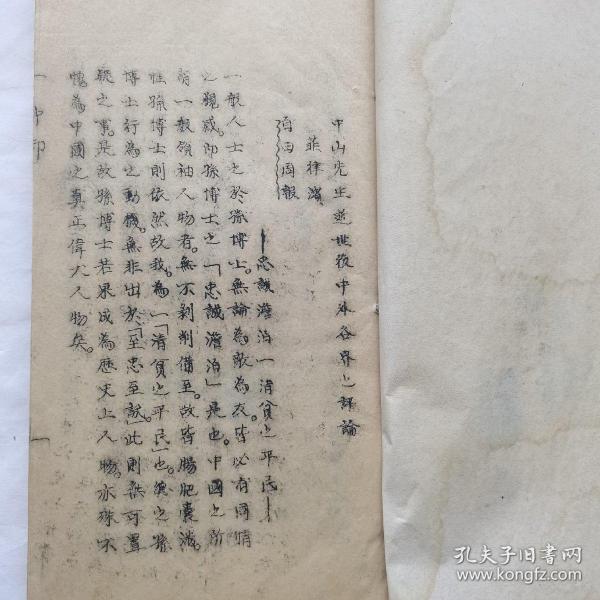 中山先生逝世後中外各界之評論
菲律濱
週報
—忠誠澹泊—清貧之平民—
一般人士之於孫博士。無論為敵為友。皆必有同情
之觀感。即孫博士之「忠誠澹泊」是也。中國之所
一般領袖人物者。無不剝削備至。故皆腸肥囊滿。
孫博士則依然故我。為一「清貧之平民」也。總之孫
博士行為之動機。無非出於「至忠至誠」此則無可置
疑之事。是故孫博士若果成為歷史上人物。亦殊不
愧為中國之真正偉大人物矣。
一
一
孔夫子旧书网
www.kongfz.com